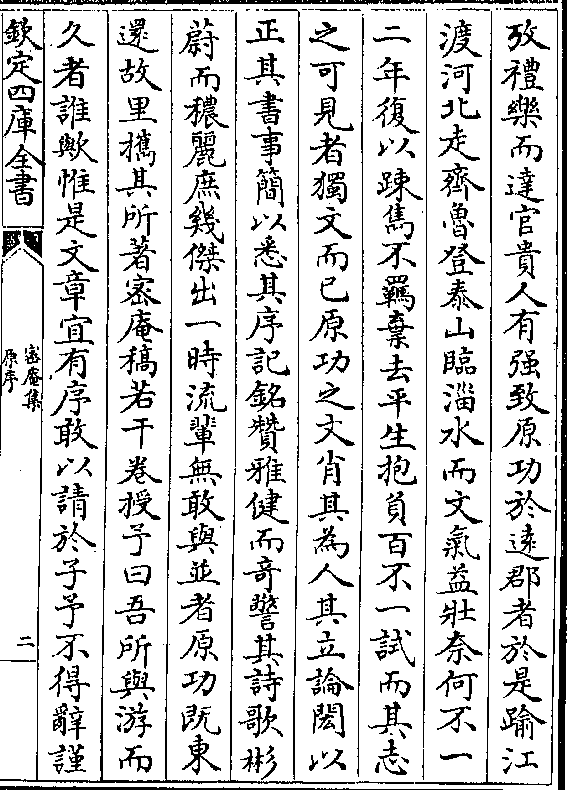 攷禮樂而達官貴人有强致原功於遠郡者於是踰江
渡河北走齊魯登泰山臨淄水而文氣益壯奈何不一
二年復以踈雋不羈棄去平生抱負百不一試而其志
之可見者獨文而已原功之文肖其為人其立論閎以
正其書事簡以悉其序記銘贊雅健而竒警其詩歌彬
蔚而穠麗庶幾傑出一時流輩無敢與並者原功既東
還故里擕其所著宻庵稿若干卷授予曰吾所與游而
久者誰歟惟是文章宜有序敢以請於子予不得辭謹
欽定四庫全書
宻庵集
原序
二